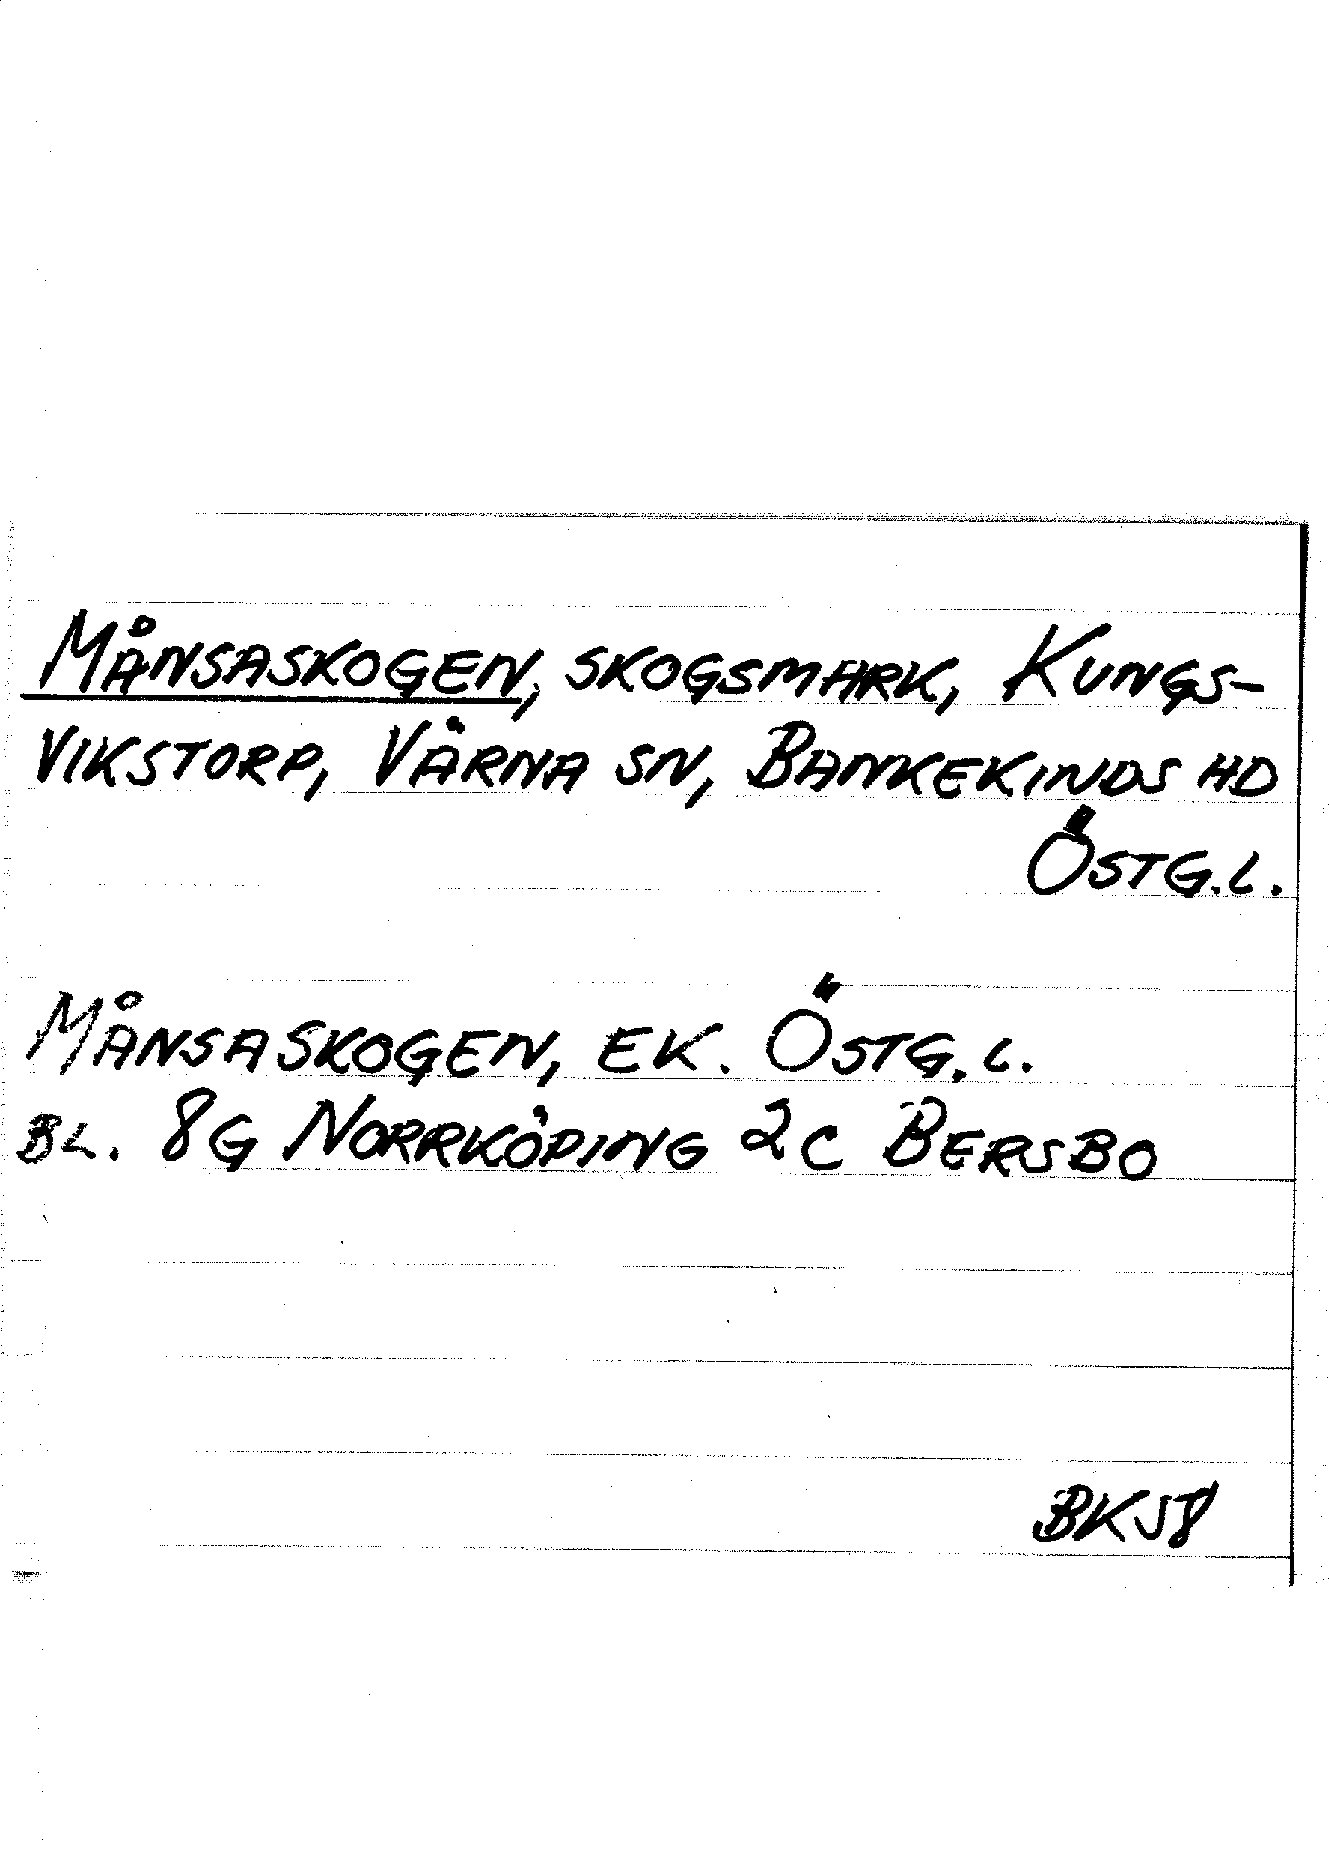 MÅNSASKOGEN, SKOGSMARK, KUNGS-
VIKSTORP, VÄRNA SN, BANKEKINDS HD
ÖSTG.L.
MÅNSASKOGEN, EK. ÖSTG.L.
BL. 8G NORRKÖPING 2C BERSBO